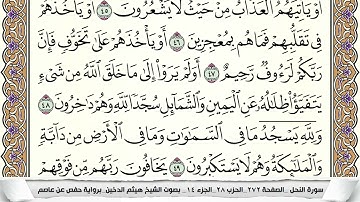 أَوْ يَأْتِيَهُمُ ٱلْعَذَابُ مِنْ حَيْثُ لَا يَشْعُرُونَ ٤٥ أَوْ يَأْخُذَهُمْ
فِى تَقَلُّبِهِمْ فَمَا هُم بِمُعْجِزِينَ ٤٦ أَوْ يَأْخُذَهُمْ عَلَىٰ تَخَوُّفٍ فَإِنَّ
رَبَّكُمْ لَرَءُوفٌ رَّحِيمٌ ٤٧ أَوَلَمْ يَرَوْا۟ إِلَىٰ مَا خَلَقَ ٱللَّهُ مِن شَىْءٍ
يَتَفَيَّؤُا۟ ظِلَٰلُهُۥ عَنِ ٱلْيَمِينِ وَٱلشَّمَآئِلِ سُجَّدًا لِّلَّهِ وَهُمْ دَٰخِرُونَ ٤٨
وَلِلَّهِ يَسْجُدُ مَا فِى ٱلسَّمَٰوَٰتِ وَمَا فِى ٱلْأَرْضِ مِن دَآبَّةٍ
وَٱلْمَلَٰٓئِكَةُ وَهُمْ لَا يَسْتَكْبِرُونَ ٤٩ يَخَافُونَ رَبَّهُم مِّن فَوْقِهِمْ
سورة النحل _ الصفحة ٢٧٢ _ الحزب ٢٨ _ الجزء ١٤ _ بصوت الشيخ هيثم الدخين _ برواية حفص عن عاصم